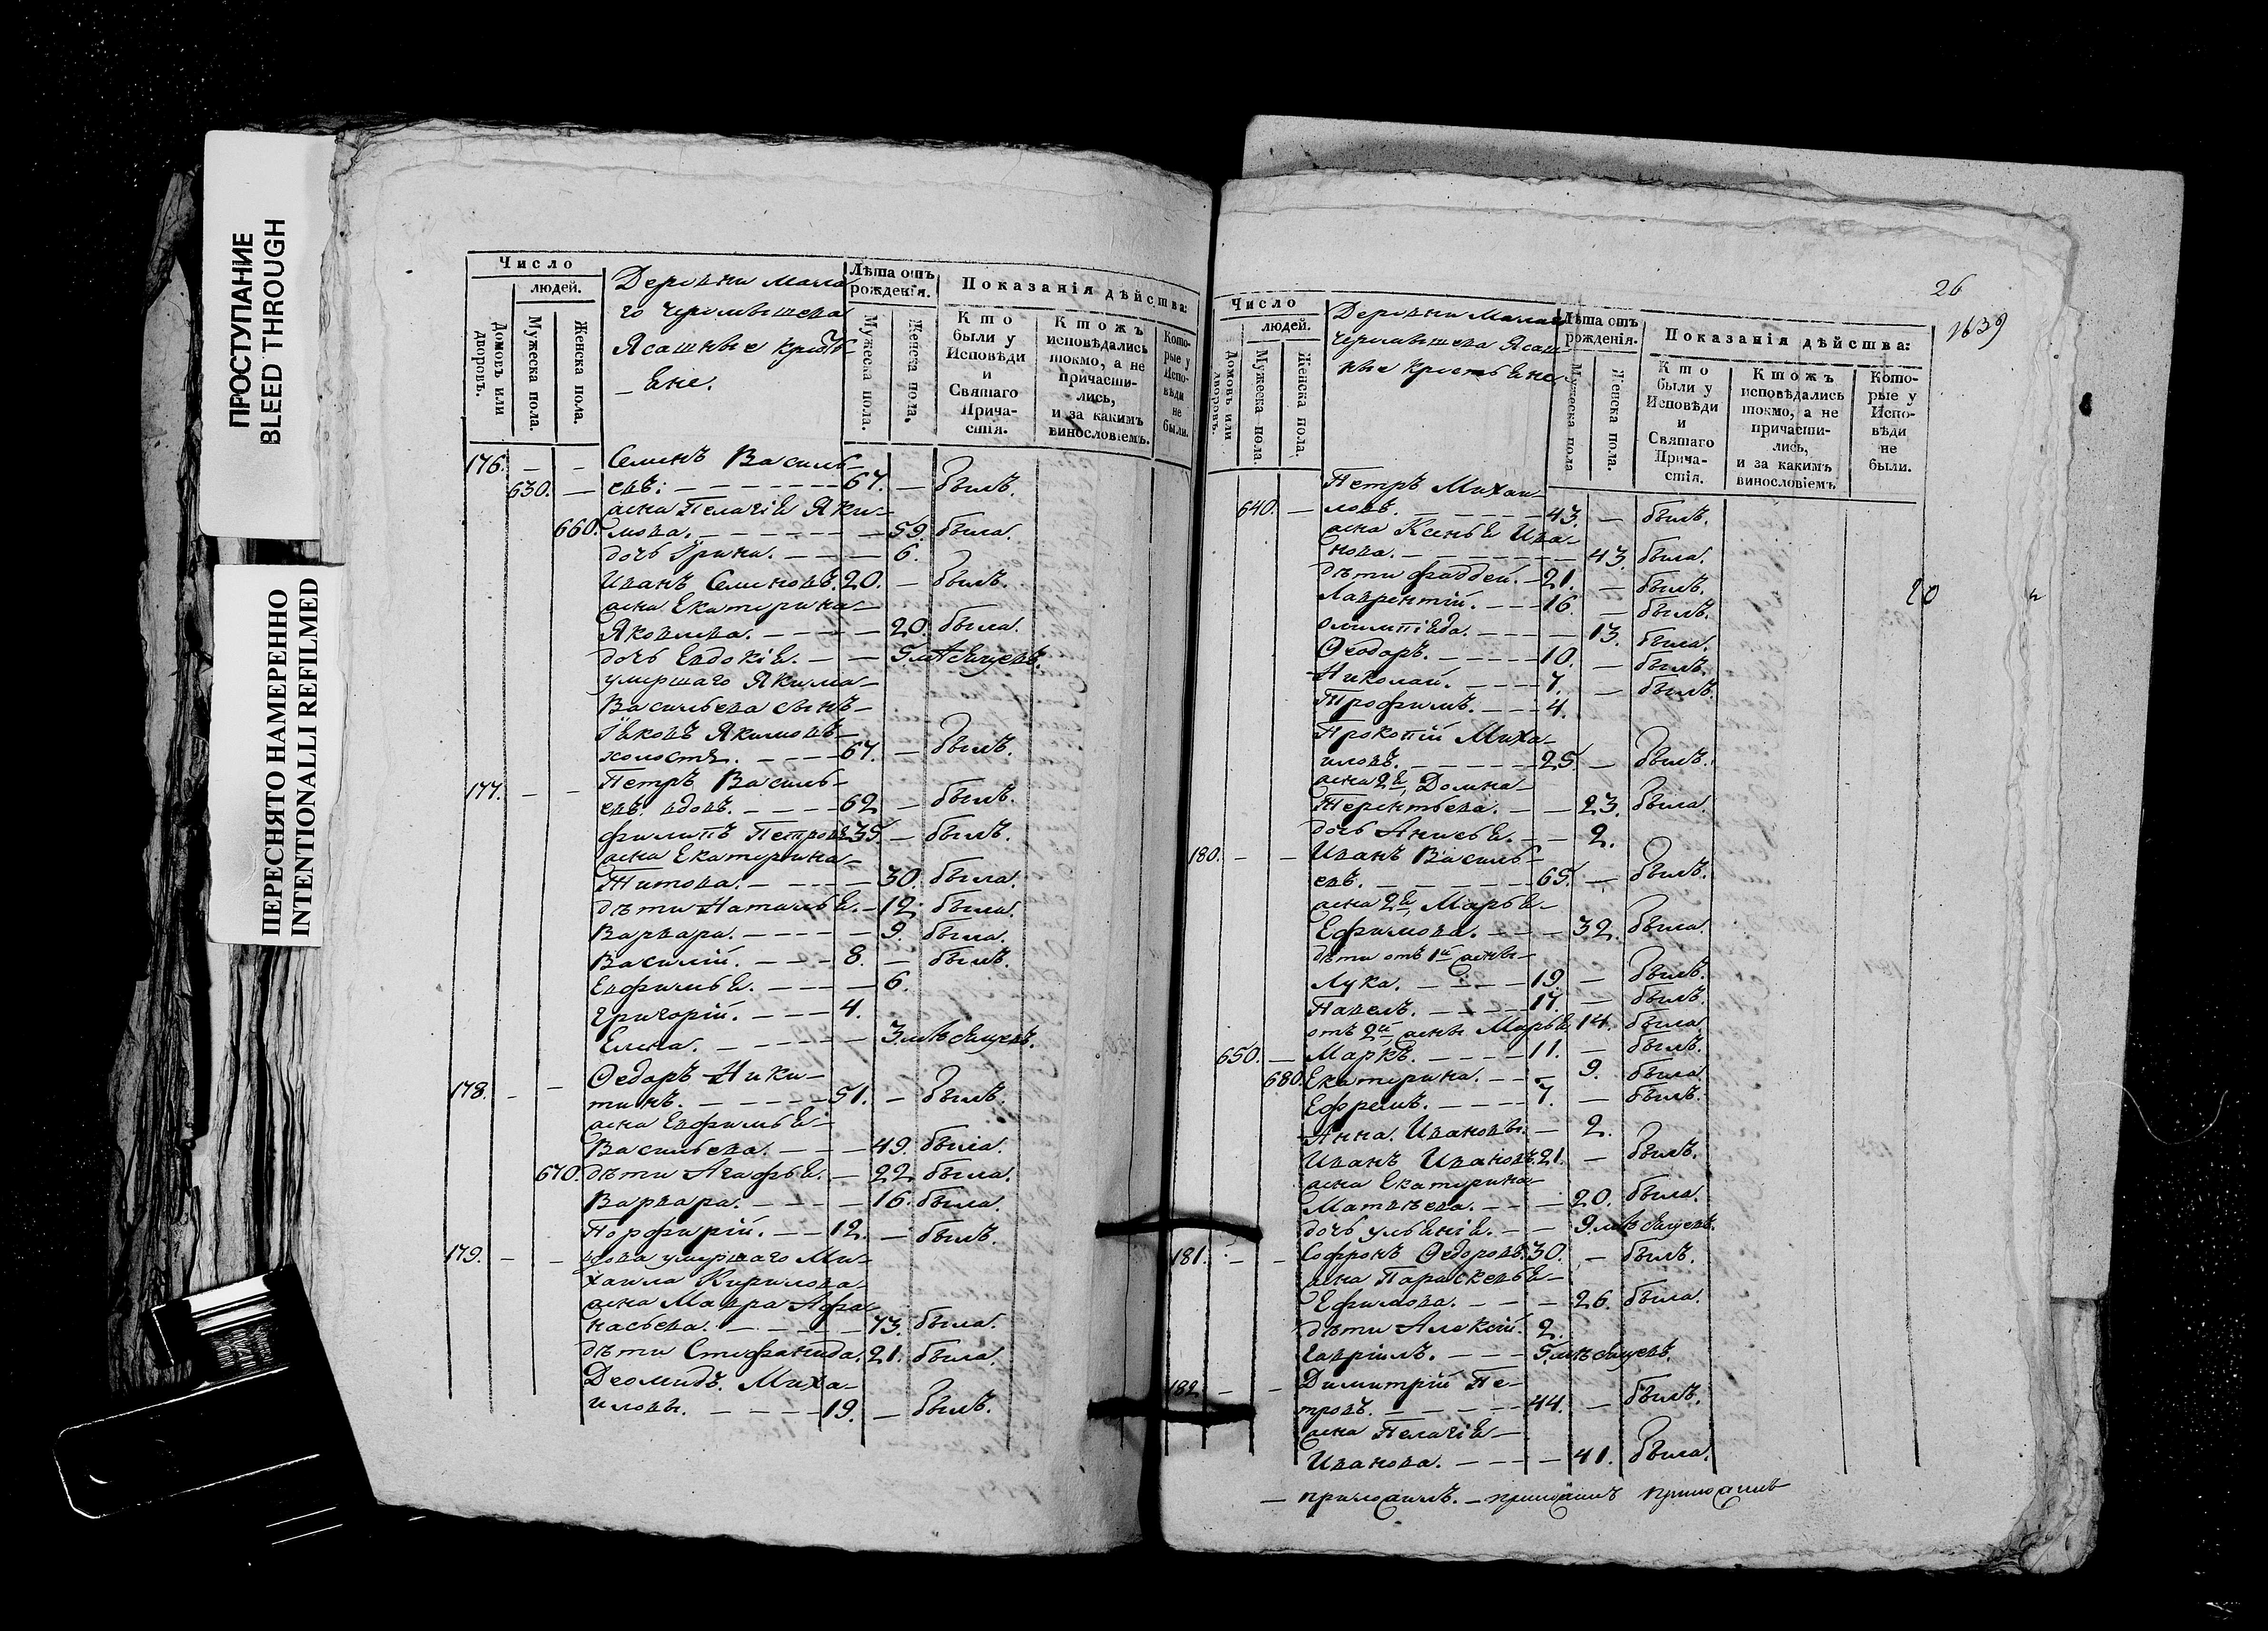 ПРОСТУПАНИЕ
BLEED THROUGH
ПЕРЕСНЯТО НАМЕРЕННО
INTENTIONALLI REFILMED
Число
людей.
Домовъ или дворовъ.
Мужеска пола.
Женска пола.
Деревни Мала
го
Ясашные крестья
-не.
Лѣта отъ рожденія.
Мужеска пола.
Женска пола.
Показанія дѣйства:
Кто были у Исповѣди и Святаго Причастія.
Ктожъ исповѣдались токмо, а не причастились, и за какимъ винословіемъ.
Которые у Исповѣди не были.
176. - - Семенъ Василь-
630. - евъ: - - - 67. - былъ.
жена Пелагія Яки-
660. мова. - - - 59. была.
дочь Ірина. - - - 6.
Иванъ Семеновъ. 20. - былъ.
жена Екатерина
Яковлева. - - - 20. была.
дочь Евдокія. - - 5 мѣсяцевъ.
умершаго Якима
Васильева сынъ
Яковъ Якимовъ
холостъ. - - - 67. - былъ.
177. - - Петръ Василь-
евъ вдовъ. - - - 62 - былъ.
Филипъ Петровъ 35. - былъ.
жена Екатерина
Титова. - - - 30. была.
дѣти Наталья. - 12. была.
Варвара. - - - 9. была.
Василій. - - - 8. - былъ.
Евфимья. - - - 6.
Григорій. - - - 4.
Елена. - - - 3 мѣсяцевъ.
178. - - Ѳедоръ Ники-
тинъ. - - - 51. - былъ.
жена Евфимья
Васильева. - - - 49. была.
670. дѣти Агафья. - 22. была.
Варвара. - - - 16. была.
Порфирій. - - 12. - былъ.
179. - - вдова умершаго Ми-
хаила Кирилова
жена Мавра Афа-
насьева. - - - 43. была.
дѣти Стефанида. 21. была.
Деомидъ Миха-
иловы. - - - 19. - былъ.
26
1639
Число
людей.
Домовъ или дворовъ.
Мужеска пола.
Женска пола.
Деревни Мала
Ясаш-
ные крестьяне
Лѣта отъ рожденія.
Мужеска пола
Женска пола.
Показанія дѣйства:
Кто были у Исповѣди и Святаго Причастія.
Ктожъ исповѣдались токмо, а не причастились, и за какимъ винословіемъ
Которые у Исповѣди не были.
Петръ Михаи-
640. - ловъ. - - - 43. - былъ.
жена Ксенья Ива-
нова. - - - 43. была.
дѣти Фаддей. - 21. - былъ.
Лаврентій. - - - 16. - былъ.
20
Олимпіада. - - - 13. была.
Ѳеодоръ. - - - 10. - былъ.
Николай. - - - 7. - былъ.
Трофимъ. - - - 4.
Прокопій Миха-
иловъ. - - - 25. - былъ.
жена 2я Домна
Терентьева. - - 23. была.
дочь Анисья. - - 2.
180. - - Иванъ Василь-
евъ. - - - 65. - былъ.
жена 2я Марья
Ефимова. - - - 32. была.
дѣти отъ 1й жены
Лука. - - - 19. - былъ.
Павелъ. - - - 17 - былъ.
отъ 2й жены Марья 14. была.
650. - Маркъ. - - - 11. - былъ.
680. Екатерина. - - 9. была.
Ефремъ. - - - 7. - былъ.
Анна Ивановы. - 2.
Иванъ Ивановъ. 21. - былъ.
жена Екатерина
Матвѣева. - - - 20. была.
дочь Ульянія. - - 9 мѣсяцевъ.
181. - - Софронъ Ѳедоровъ. 30. - былъ.
жена Параскевья
Ефимова. - - - 26. была.
дѣти Алексій. 2.
Гавріилъ. - - - 5 мѣсяцевъ.
182. - - Димитрій Пе-
тровъ. - - - 44. - былъ.
жена Пелагія
Иванова. - - - 41. была.